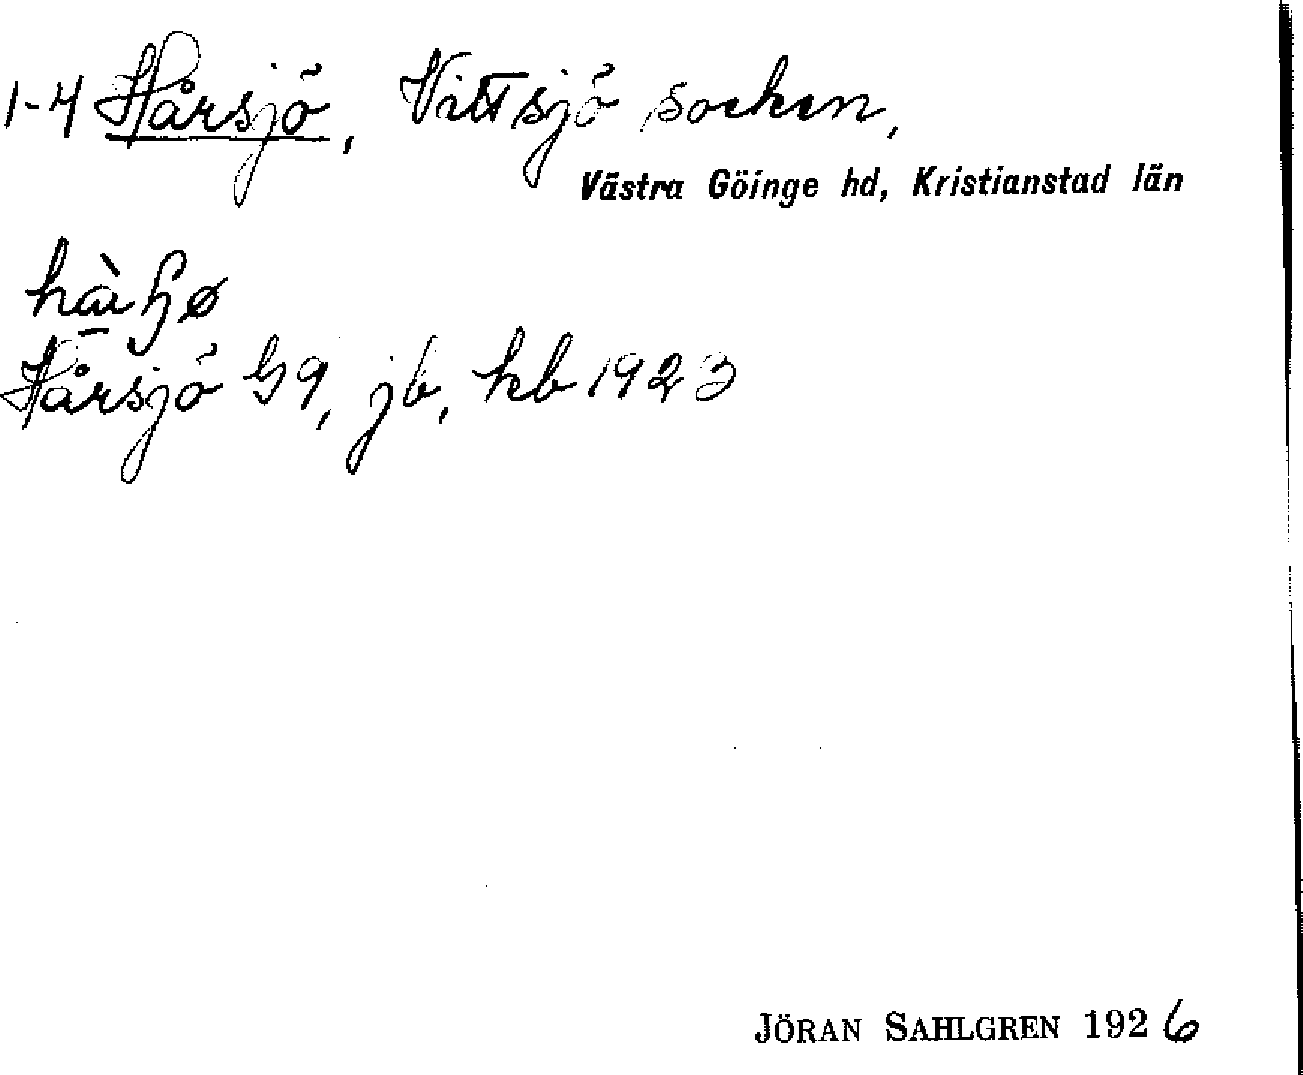 1-4 Hårsjö, Vittsjö socken,
Västra Göinge hd, Kristianstad län
Hårsjö G9, jb, hb 1923
JÖRAN SAHLGREN 1926